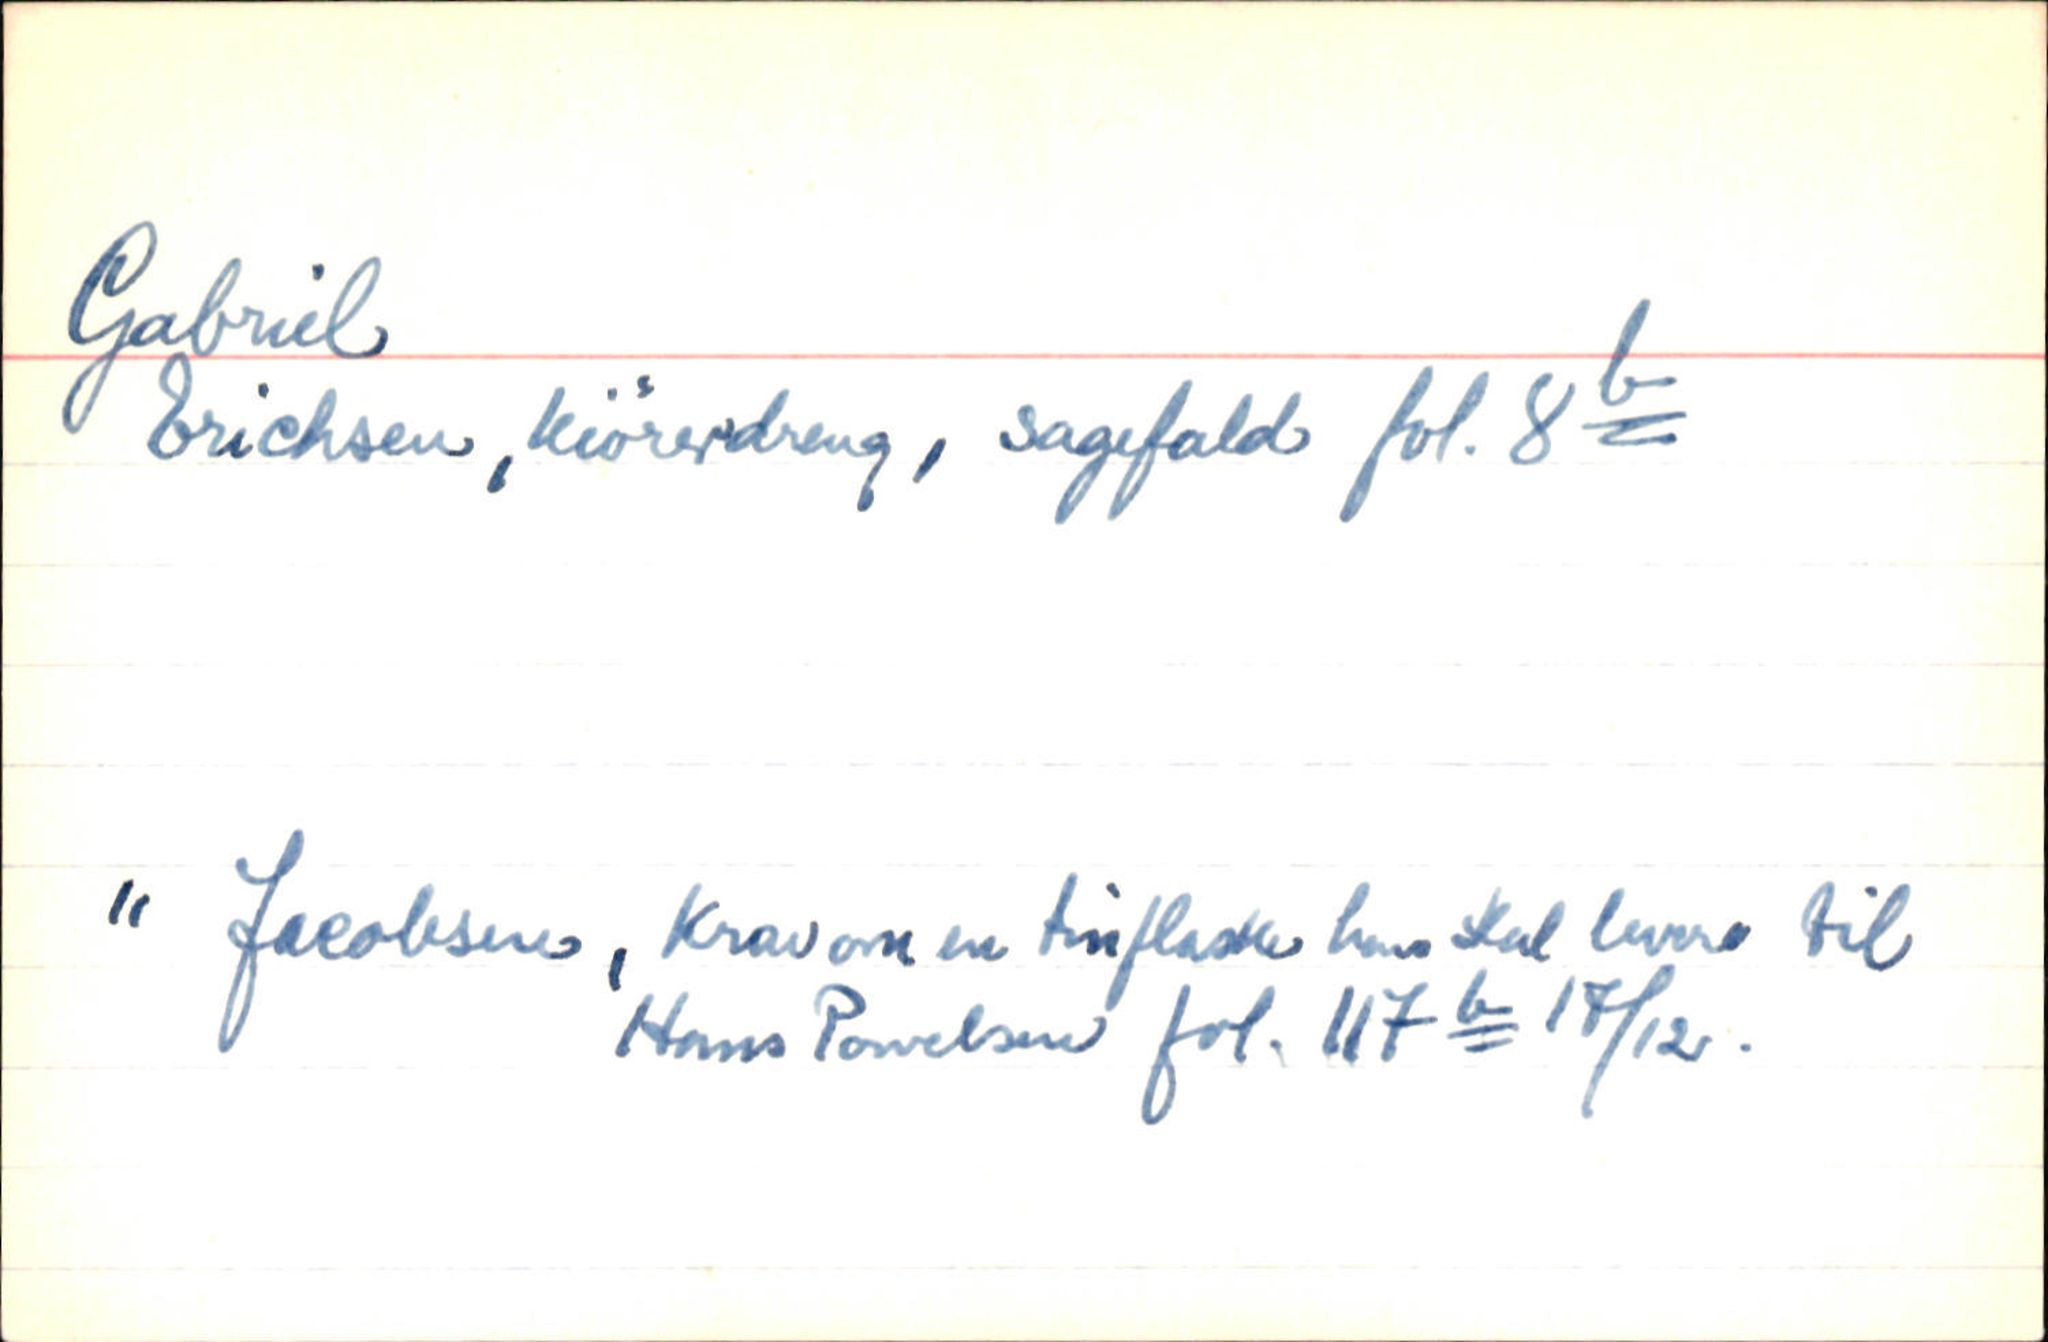 Gabriel
Erichsen, kiöredreng, sagefald fol. 8 b
" Jacobsen, Krav om en tinflaske han skal levere til
Hans Powelsen fol. 117 b 17/12.